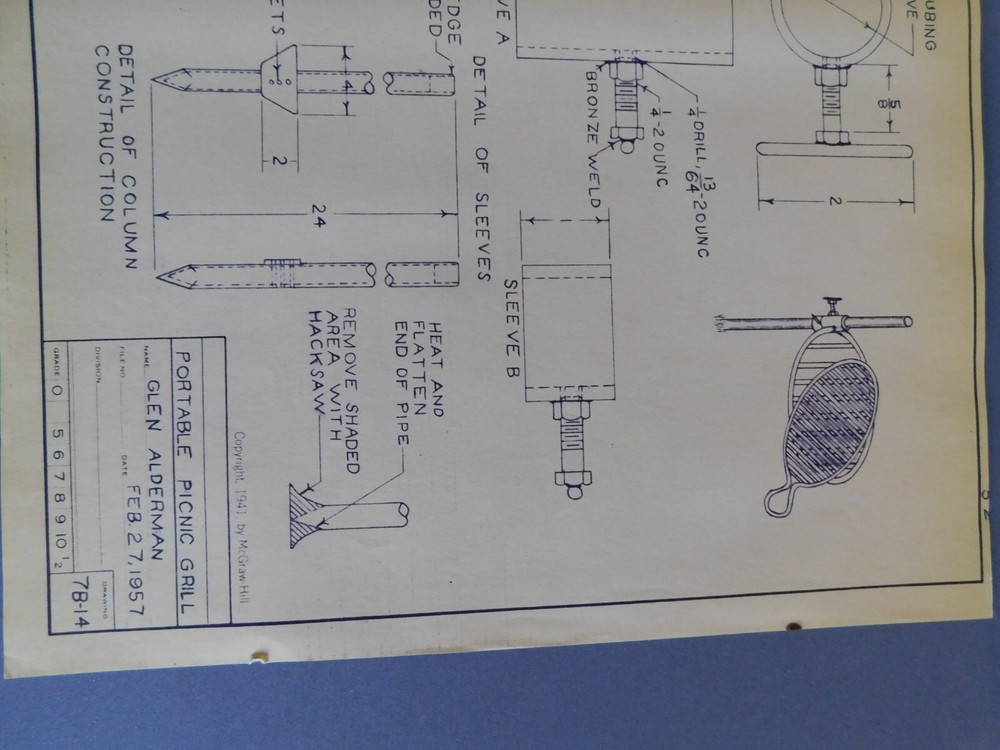 UBING
VE
5/8
2
VE A
1/4 DRILL, 13/64-20UNC
1/4-20UNC
BRONZE WELD
DETAIL OF SLEEVES
SLEEVE B
EDGE
DED
ETS
4
2
24
DETAIL OF COLUMN
CONSTRUCTION
HEAT AND
FLATTEN
END OF PIPE
REMOVE SHADED
AREA WITH
HACKSAW
Copyright, 1941, by McGraw-Hill
PORTABLE PICNIC GRILL
NAME GLEN ALDERMAN
FILE NO. DATE FEB. 27, 1957
DIVISION
DRAWING
GRADE 0 5 6 7 8 9 10 1/2 7B-14